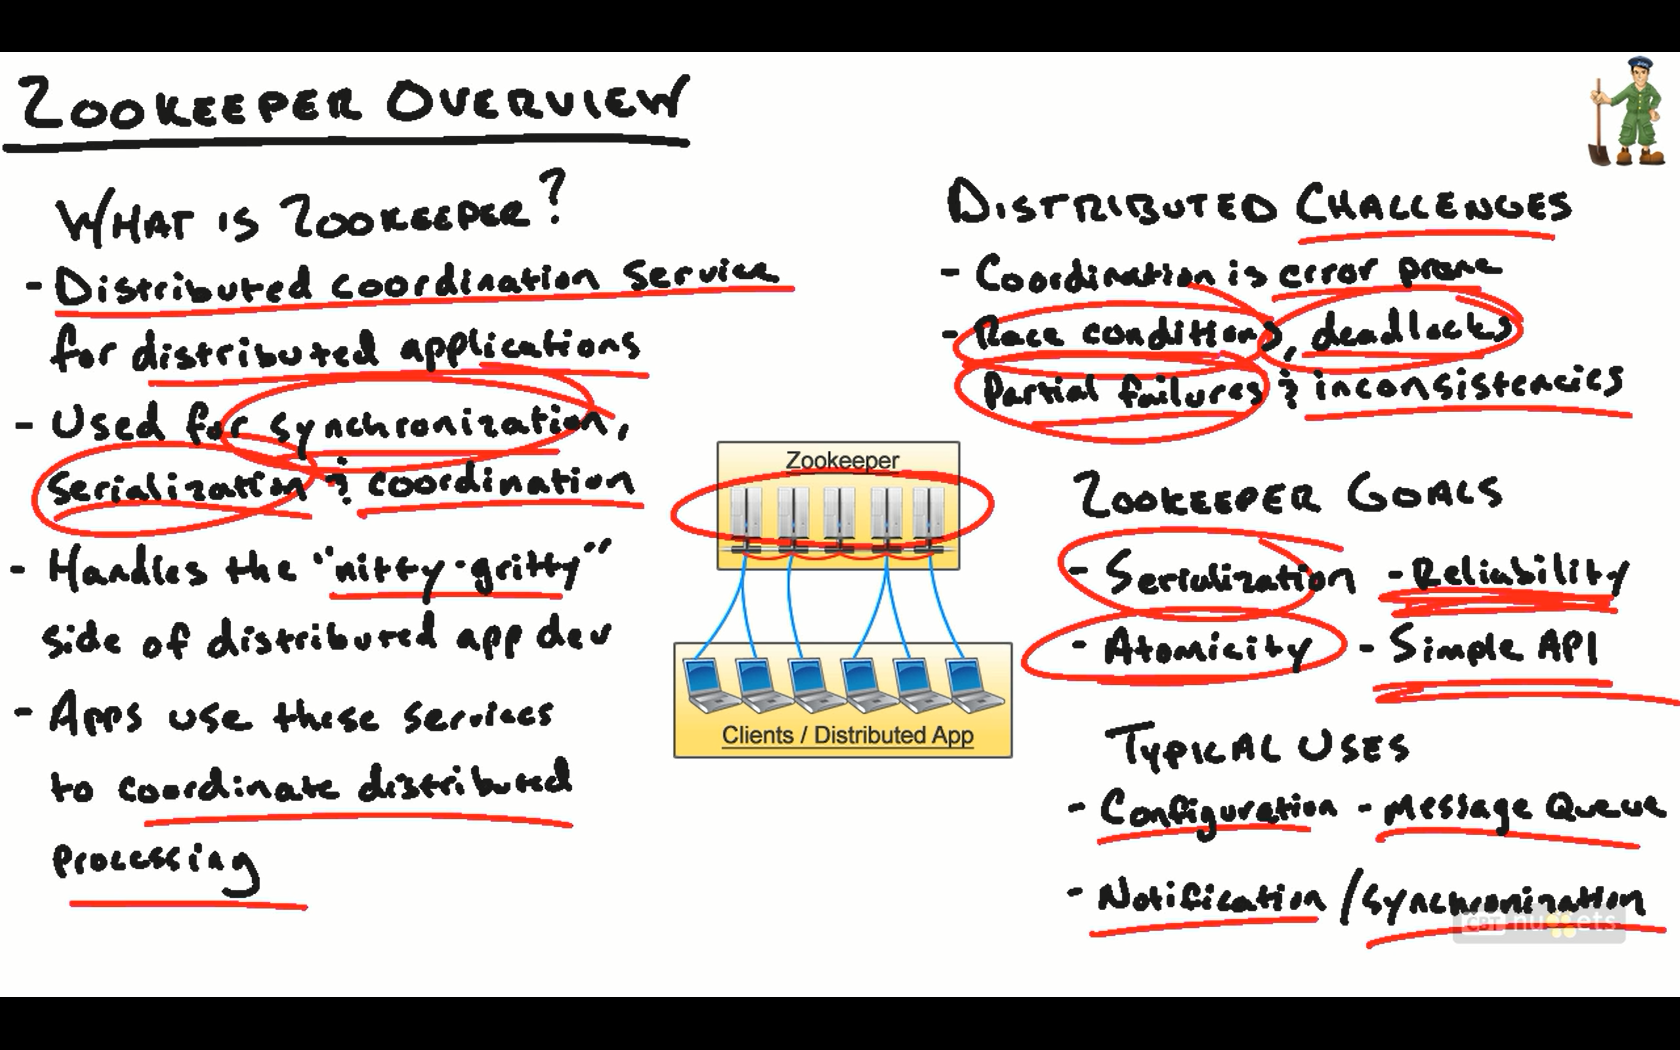 ZOOKEEPER OVERVIEW
WHAT IS ZOOKEEPER?
- Distributed coordination service
for distributed applications
- Used for synchronization,
serialization & coordination
- Handles the "nitty-gritty"
side of distributed app dev
- Apps use these services
to coordinate distributed
processing
Zookeeper
Clients / Distributed App
DISTRIBUTED CHALLENGES
- Coordination is error prone
- Race conditions, deadlocks
Partial failures & inconsistencies
ZOOKEEPER GOALS
- Serialization - Reliability
- Atomicity - Simple API
TYPICAL USES
- Configuration - Message Queue
- Notification / Synchronization
CBT nuggets